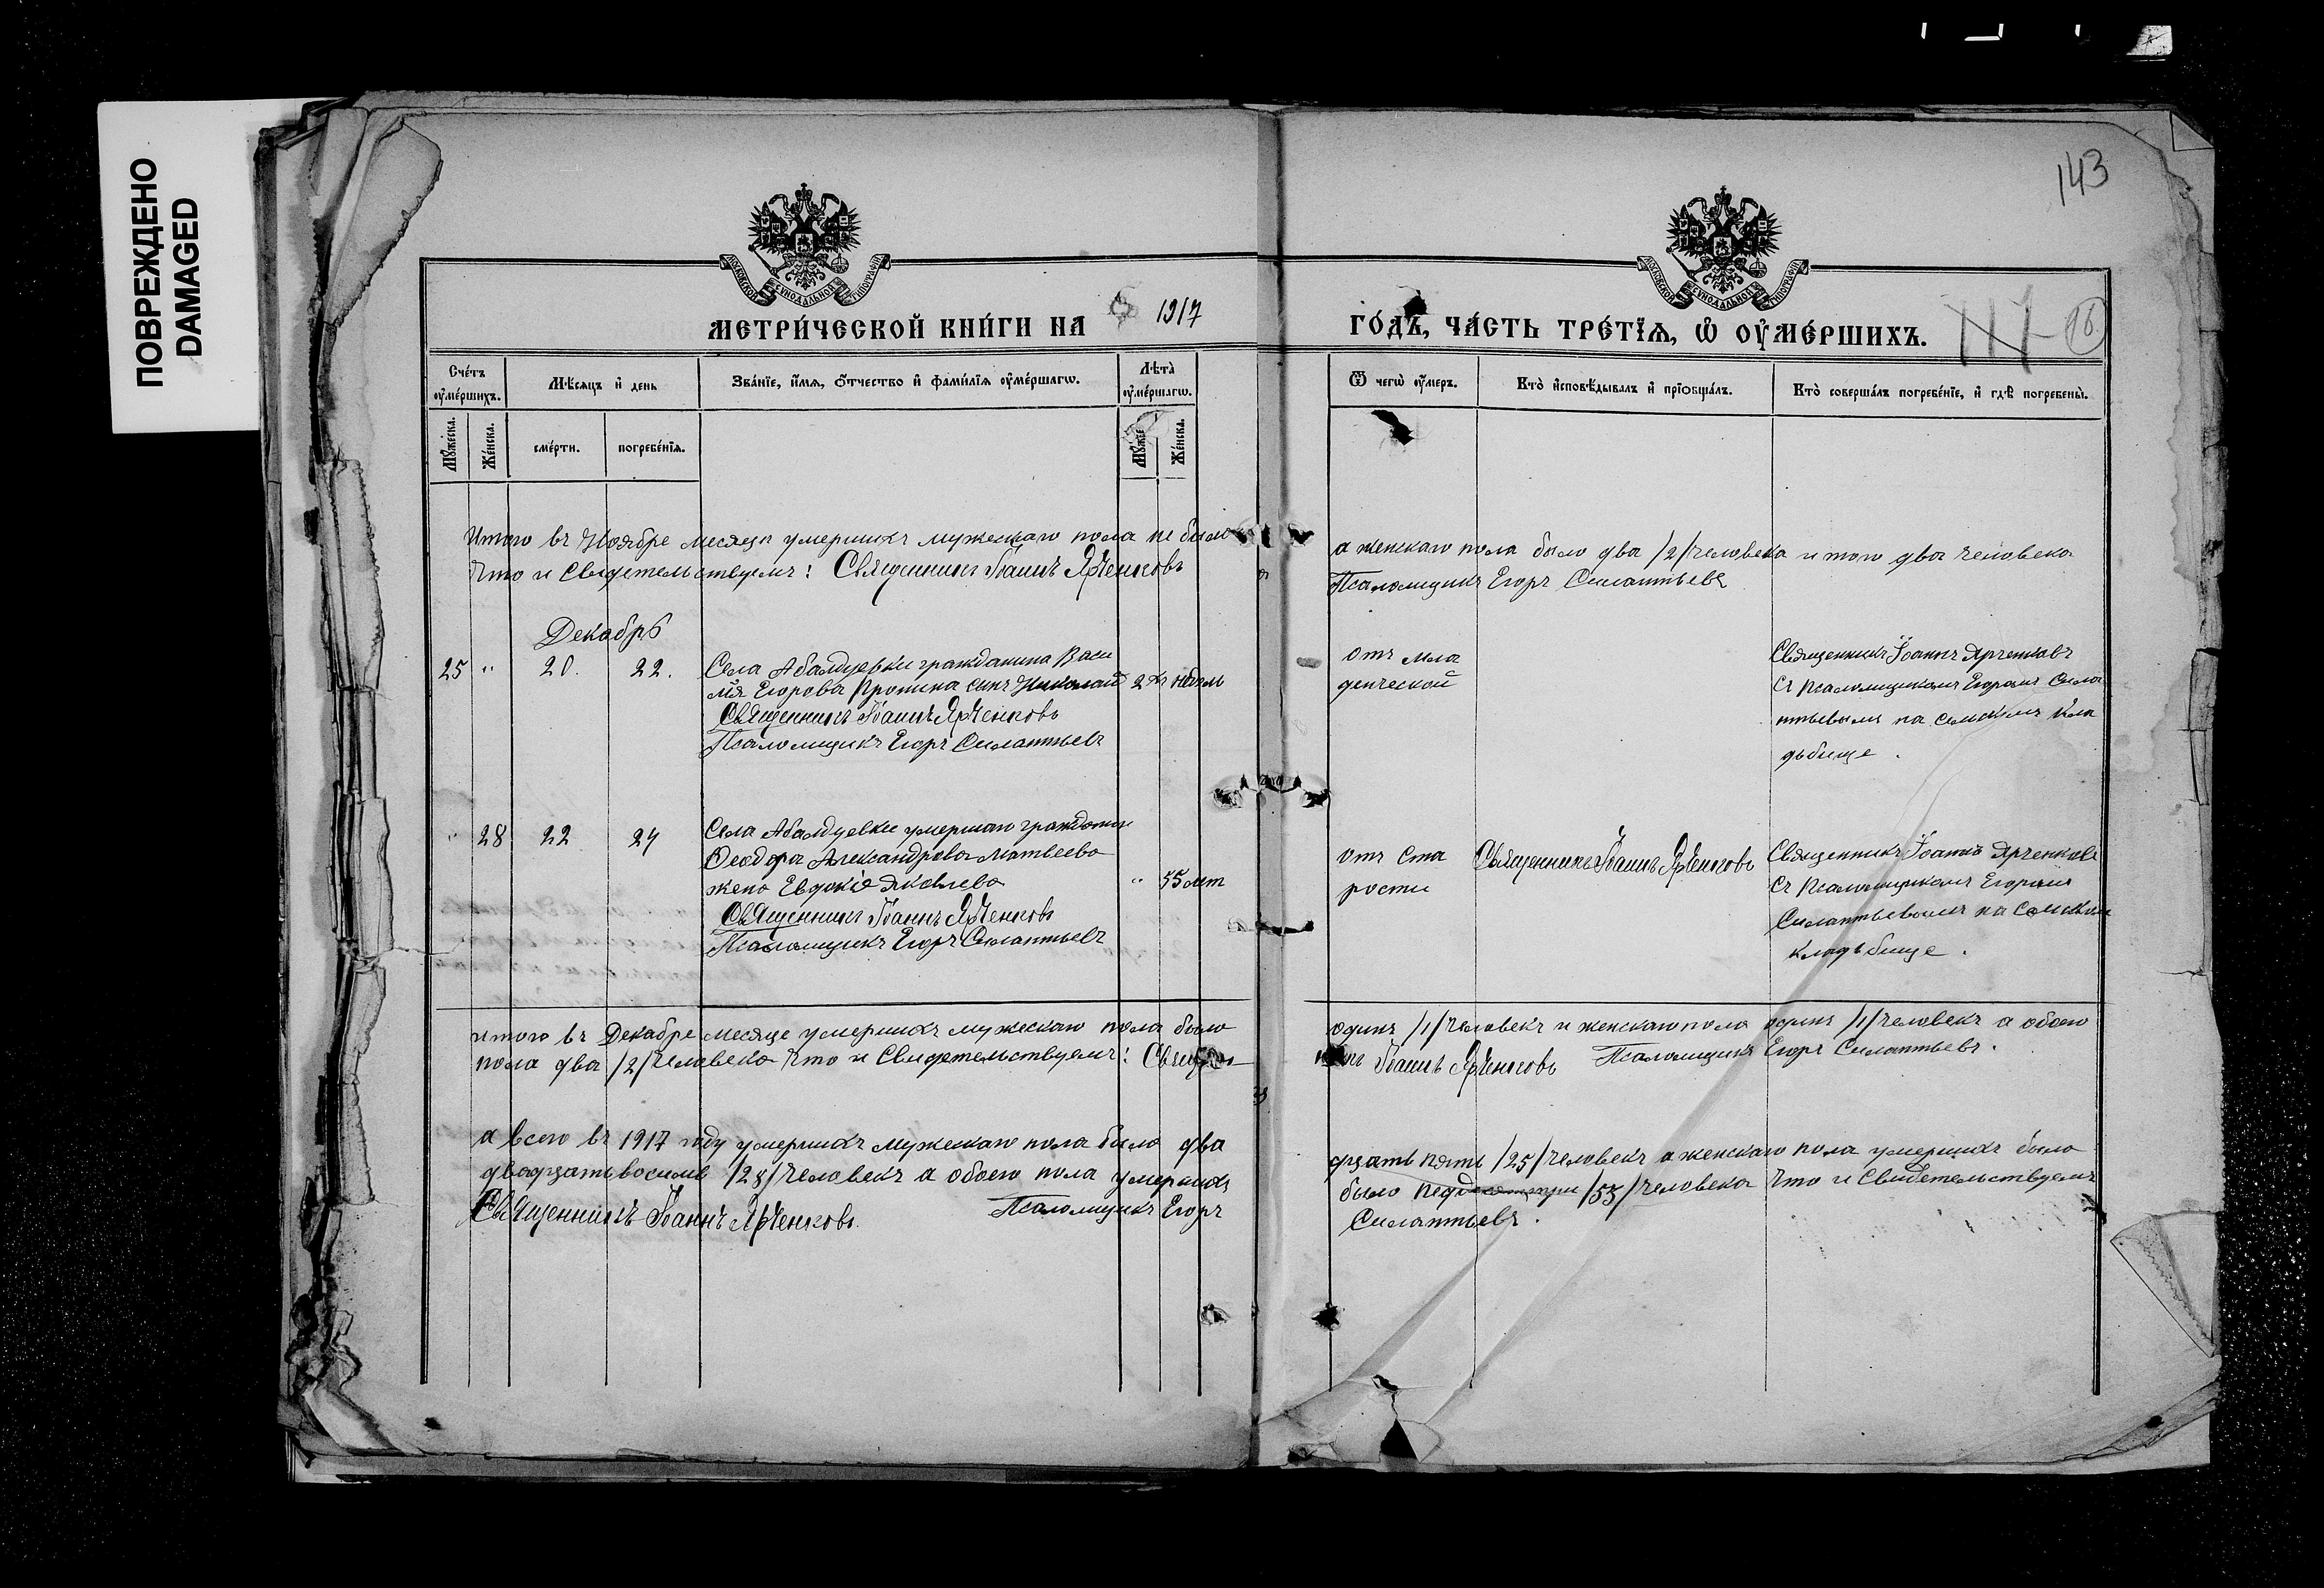 ПОВРЕЖДЕНО
DAMAGED
143
МОСКОВСКОЙ СѴНОДАЛЬНОЙ ТИПОГРАФІИ
МОСКОВСКОЙ СѴНОДАЛЬНОЙ ТИПОГРАФІИ
МЕТРИ́ЧЕСКОЙ КНИ́ГИ НА 1917
ГО́ДЪ, ЧА́СТЬ ТРЕ́ТЇѦ, Ѡ҆ ОУ҆МЕ́РШИХЪ.
117 16.
Сче́тъ оу҆ме́ршихъ.
Мѣ́сяцъ и҆ день
Зва́нїе, и҆́мѧ, ѻ҆́тчество и҆ фами́лїѧ оу҆ме́ршагѡ.
Лѣ̀та оу҆ме́ршагѡ.
Ѿ чегѡ̀ оу҆́меръ.
Кто̀ и҆сповѣ́дывалъ и҆ прїѡбща́лъ.
Кто̀ соверша́лъ погребе́нїе, и҆ гдѣ̀ погребены̀.
Му́жеска.
Же́нска.
сме́рти.
погребе́нїѧ.
Же́нска.
Итого въ Ноябре месяцъ умершихъ мужескаго пола не было
а женскаго пола было два /2/ человека итого два человека
Что и Свидетельствуемъ: Священникъ Іоаннъ Ярченковъ
Псаломщикъ Егоръ Силантьевъ
Декабрь
25 " 20. 22. Села Абалдуевки гражданина Васи
лія Егорова Пронина сынъ Николай 2х недель
Священникъ Іоаннъ Ярченковъ
Псаломщикъ Егоръ Силантьевъ
отъ мла
денческой
Священникъ Іоаннъ Ярченковъ
Съ Псаломщикомъ Егоромъ Сила
нтьевымъ на сельскомъ кла
дьбище.
" 28 22 24 Села Абалдуевки умершаго гражданина
Ѳеодора Александрова Матвеева
жена Евдокіе Яковлева " 55 лет
Священникъ Іоаннъ Ярченковъ
Псаломщикъ Егоръ Силантьевъ
отъ Ста
рости
Священникъ Іоаннъ Ярченковъ
Священникъ Іоаннъ Ярченковъ
Съ Псаломщикомъ Егоромъ
Силантьевымъ на Сельском
кладьбище.
итого въ Декабре месяце умершихъ мужескаго пола было
одинъ /1/ человекъ и женскаго пола одинъ /1/ человекъ а обоего
пола два /2/ человека Что и Свидетельствуемъ:
Іоаннъ Ярченковъ Псаломщикъ Егоръ Силантьевъ.
а всего въ 1917 году умершихъ мужескаго пола было два
дцать пять /25/ человекъ а женскаго пола умершихъ было
двадцать восимь /28/ человекъ а обоего пола умерших
было /53/ человека Что и Свидетельствуемъ
Священникъ Іоаннъ Ярченковъ. Псаломщикъ Егоръ
Силантьевъ.